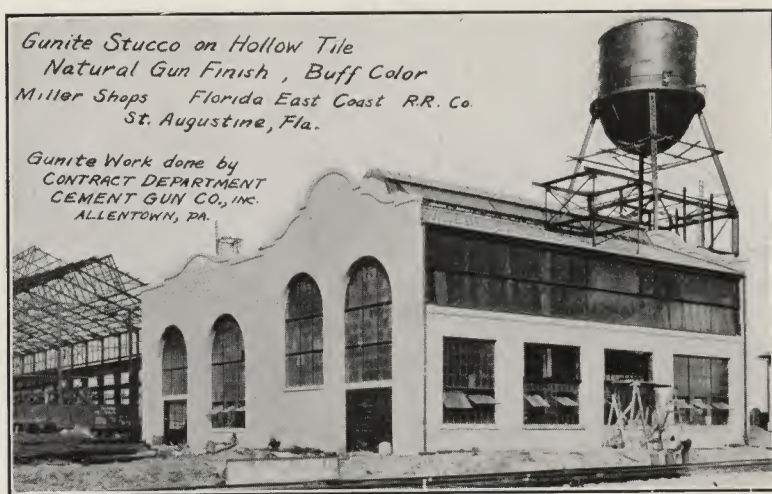 Gunite Stucco on Hollow Tile
Natural Gun Finish, Buff Color
Miller Shops Florida East Coast R.R. Co.
St. Augustine, Fla.
Gunite Work done by
CONTRACT DEPARTMENT
CEMENT GUN CO., INC.
ALLENTOWN, PA.